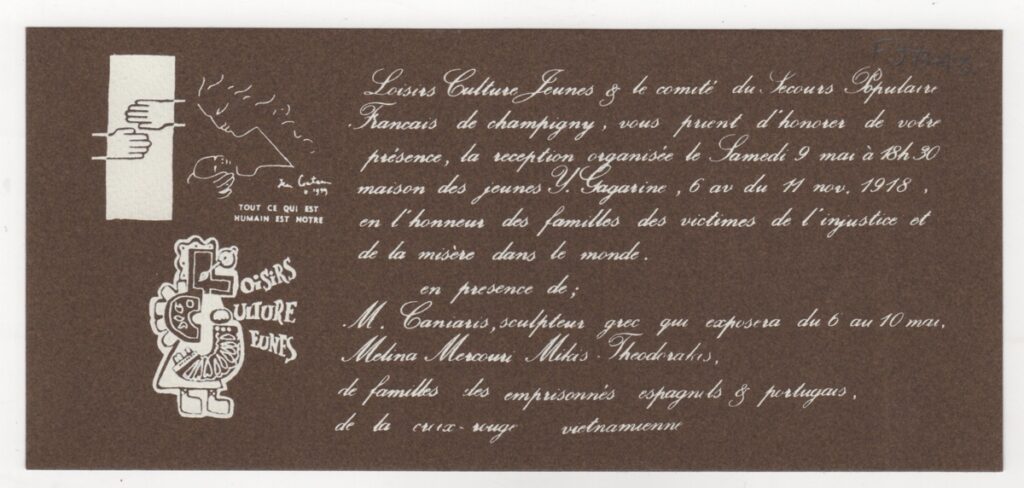 TOUT CE QUI EST
HUMAIN EST NOTRE
LOISIRS
CULTURE
JEUNES
Loisirs Culture Jeunes & le comité du Secours Populaire
Francais de champigny, vous prient d'honorer de votre
présence, la reception organisée le Samedi 9 mai à 18h30
maison des jeunes Y. Gagarine, 6 av du 11 nov. 1918,
en l'honneur des familles des victimes de l'injustice et
de la misère dans le monde.
en presence de;
M. Caniaris, sculpteur grec qui exposera du 6 au 10 mai,
Melina Mercouri Mikis Theodorakis,
de familles des emprisonnés espagnols & portugais,
de la croix-rouge vietnamienne